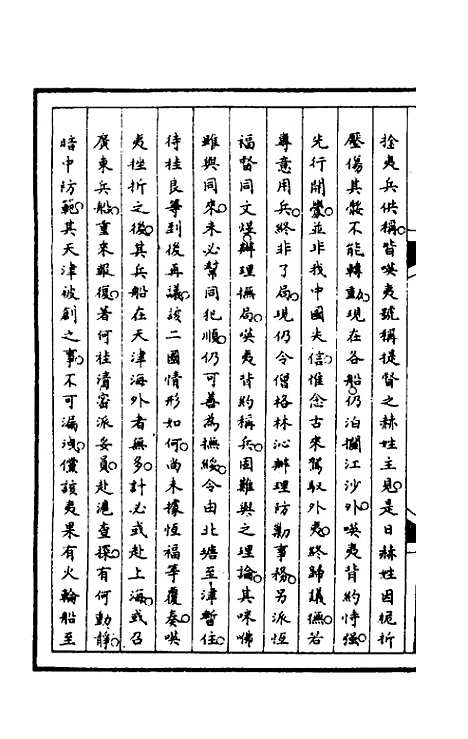 捡夷兵供稱皆㖞夷號稱提督之赫姓主見是日赫姓因桅折
壓傷其骽不能轉動現在各船仍泊攔江沙外㖞夷背約恃強
先行開釁並非我中國失信惟念古來駕馭外夷終歸議撫若
專意用兵終非了局現仍令僧格林沁辦理防勦事務另派恆
福督同文煜辦理撫局㖞夷背約稱兵固難與之理論其咪𠵽
雖與同來未必幫同犯順仍可善為撫綏令由北塘至津暫住
待桂良等到後再議該二國情形如何尚未據恆福等覆奏㖞
夷挫折之後其兵船在天津海外者無多計必或赴上海或召
廣東兵船重來報復著何桂清密派妥員赴滬查探有何動靜
暗中防範其天津被創之事不可漏洩儻該夷果有火輪船至